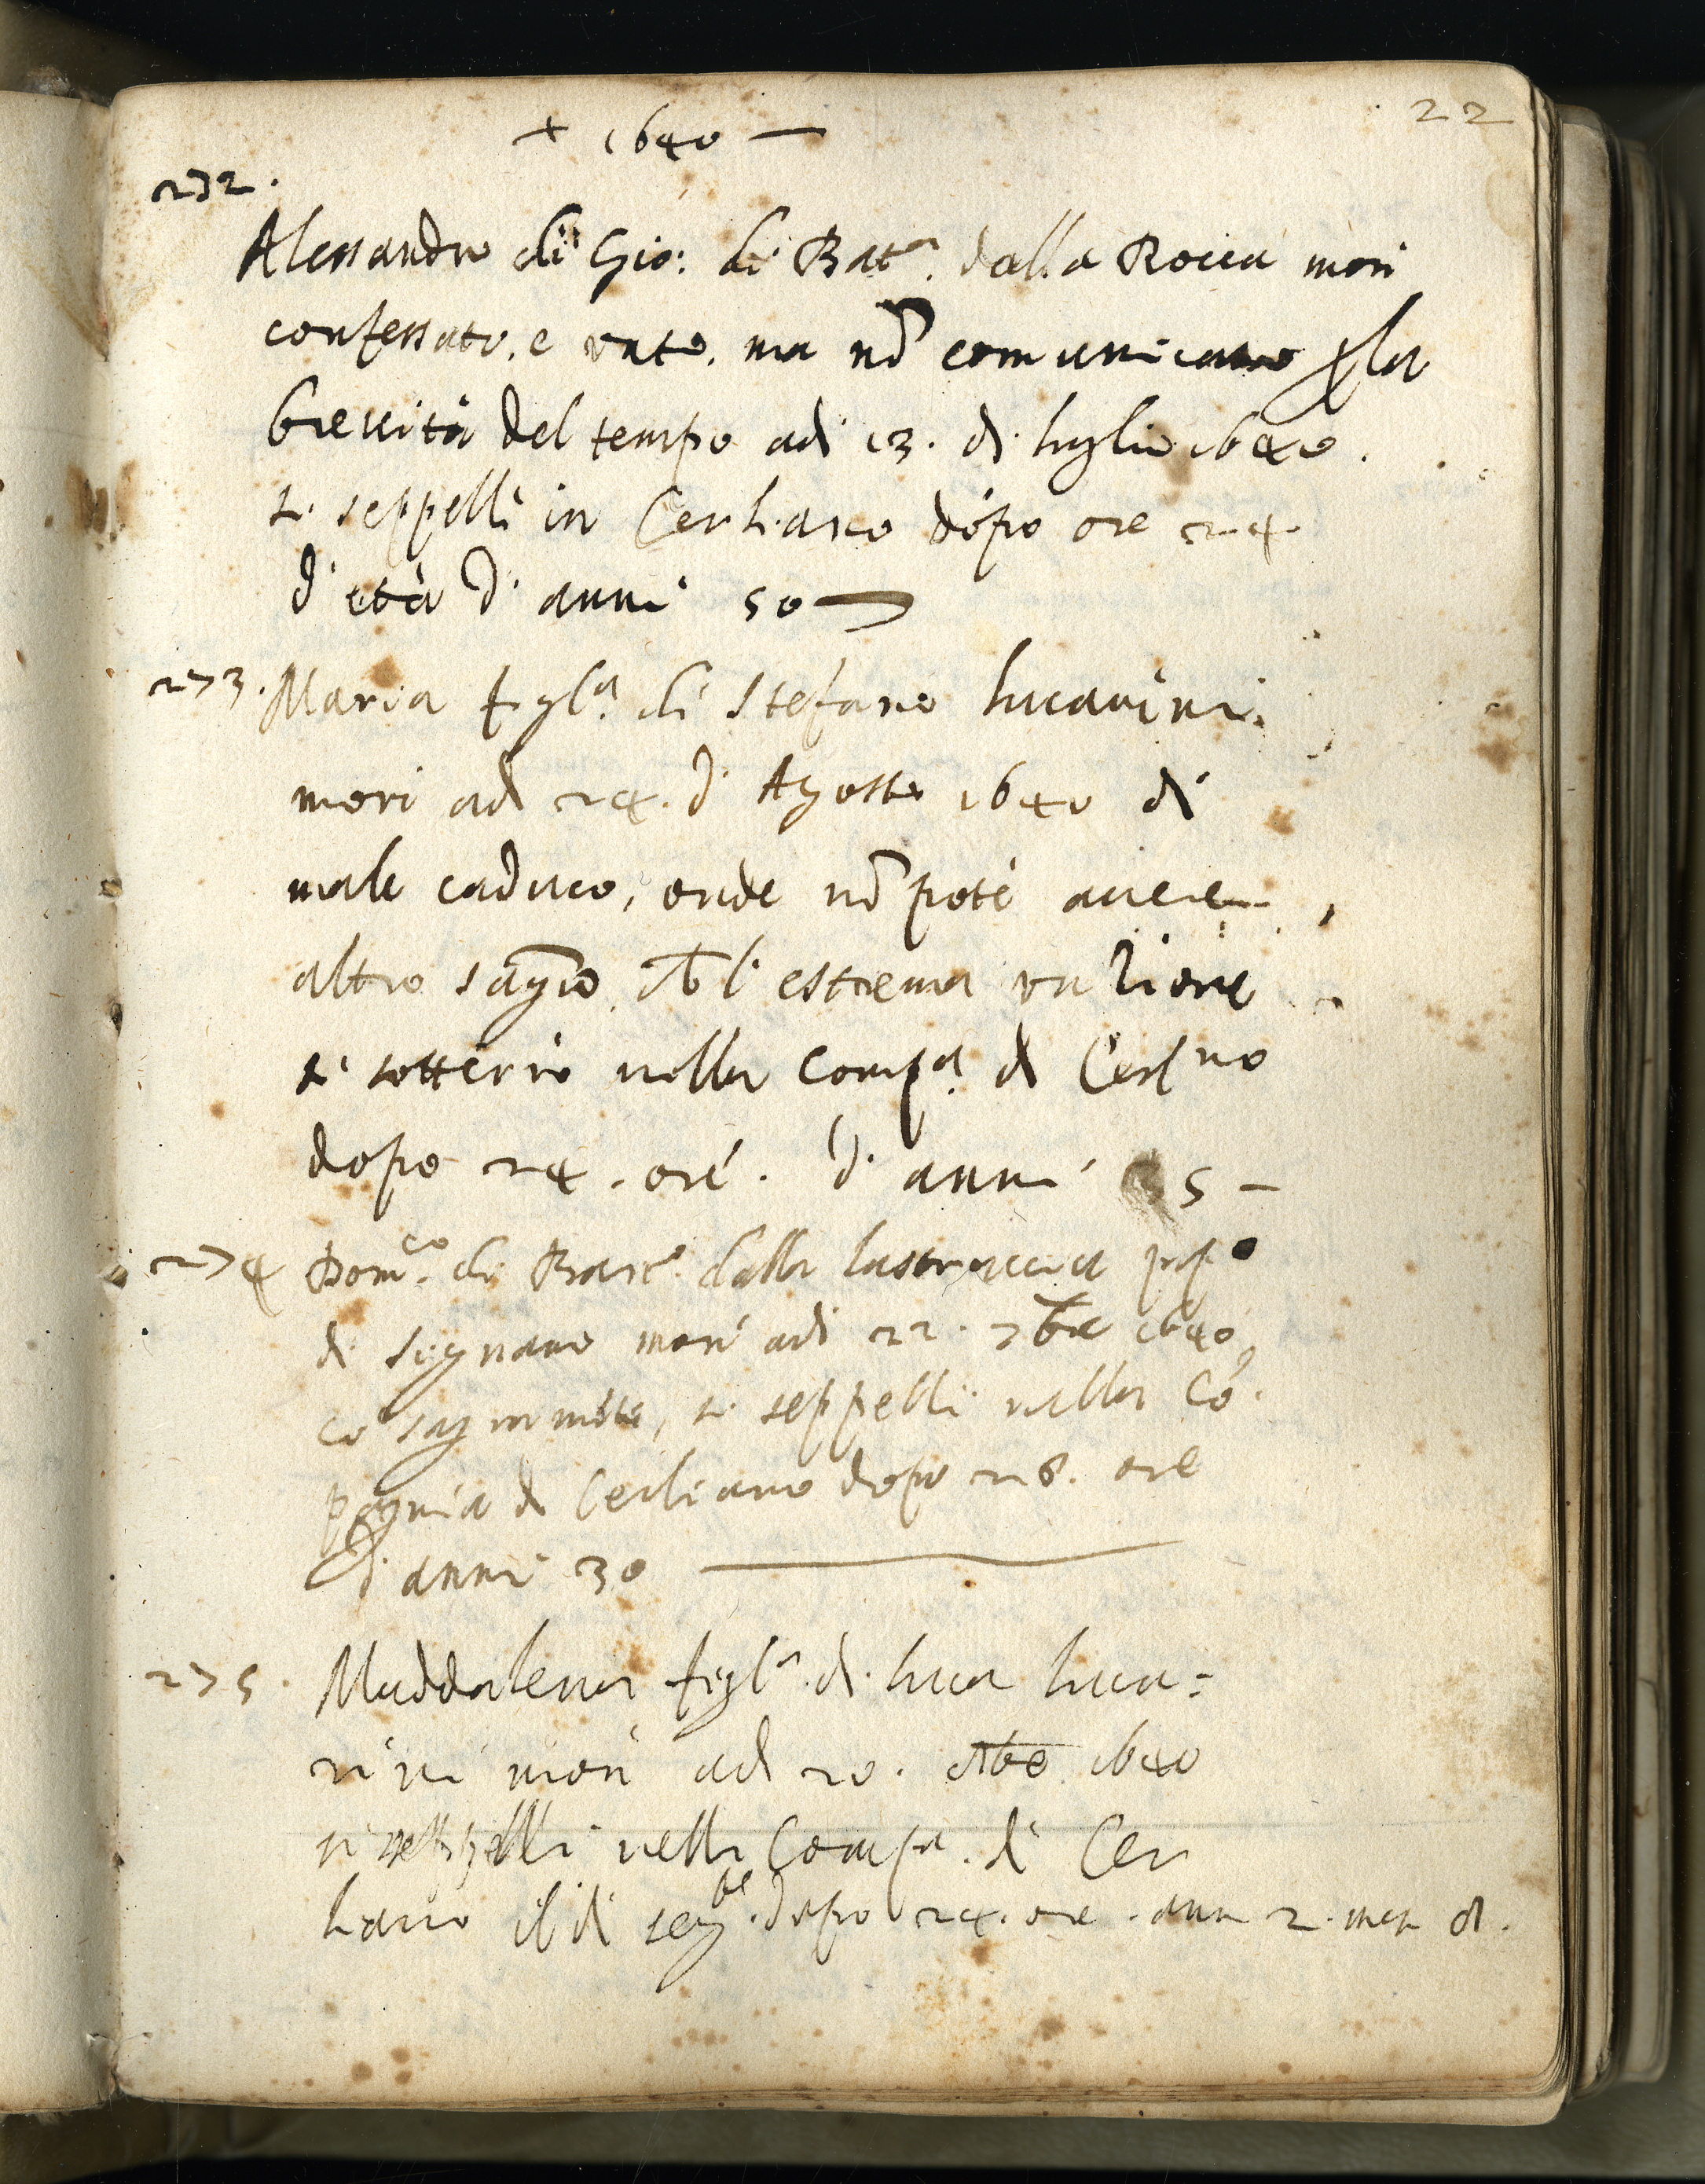 22
+ 1640 —
272.
Alessandro di Gio: di Batᵃ. dalla Rocca morì
confessato, e unto, ma nō comunicato p la
brevità del tempo adi 13. di luglio 1640.
si seppellì in Cerliano dopo ore 24
d'età d'anni 50
273. Maria figlᵃ. di Stefano lucarini
morì adi 24. d'Agosto 1640 di
male caduco, onde nō potè avere
altro sagrō. l'estrema untione
si sotterrò nella Compᵃ. di Cerlⁿᵒ
dopo 24. ore. d'anni 35 –
274 Domᶜᵒ. di Bartº. dalla lastruccia popº
di Signano morì adi 22. 7bre 1640
cō sagramēti, si seppellì nella cō
pagnia di Cerliano dopo 26. ore
d'anni 30
275. Maddalena figlᵃ. di luca luca=
rini morì adi 20. 1640
si seppellì nella Compᵃ. di Cer
liano il di segᵗᵉ. dopo 24. ore. ann 2. mesi 8.